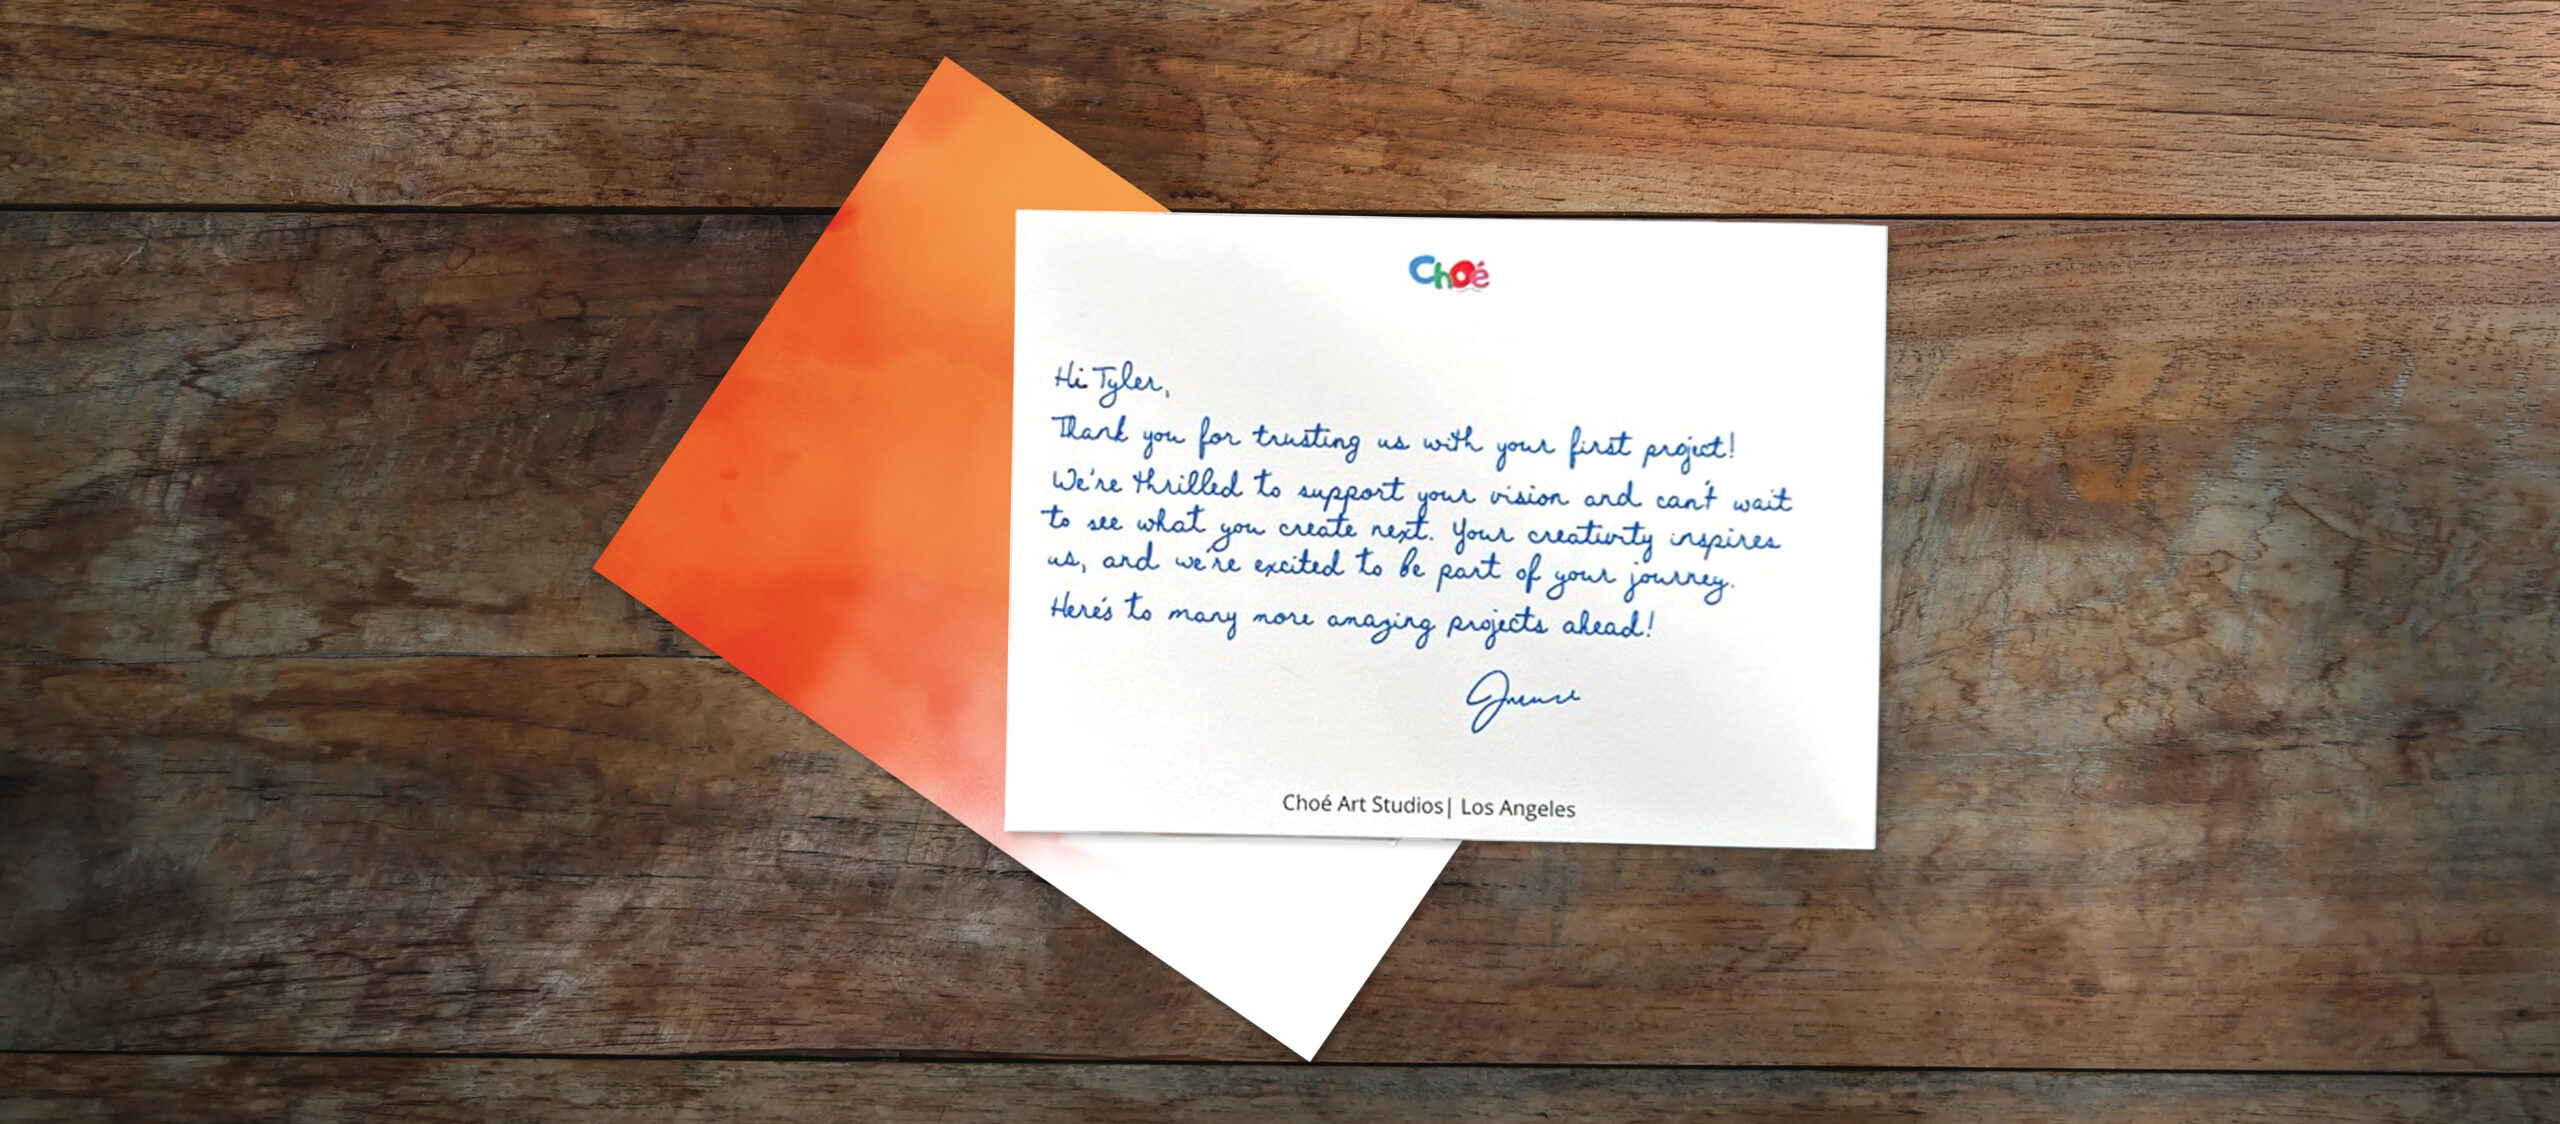 Choé
Hi Tyler,
Thank you for trusting us with your first project!
We're thrilled to support your vision and can't wait
to see what you create next. Your creativity inspires
us, and we're excited to be part of your journey.
Here's to many more amazing projects ahead!
Choé Art Studios| Los Angeles